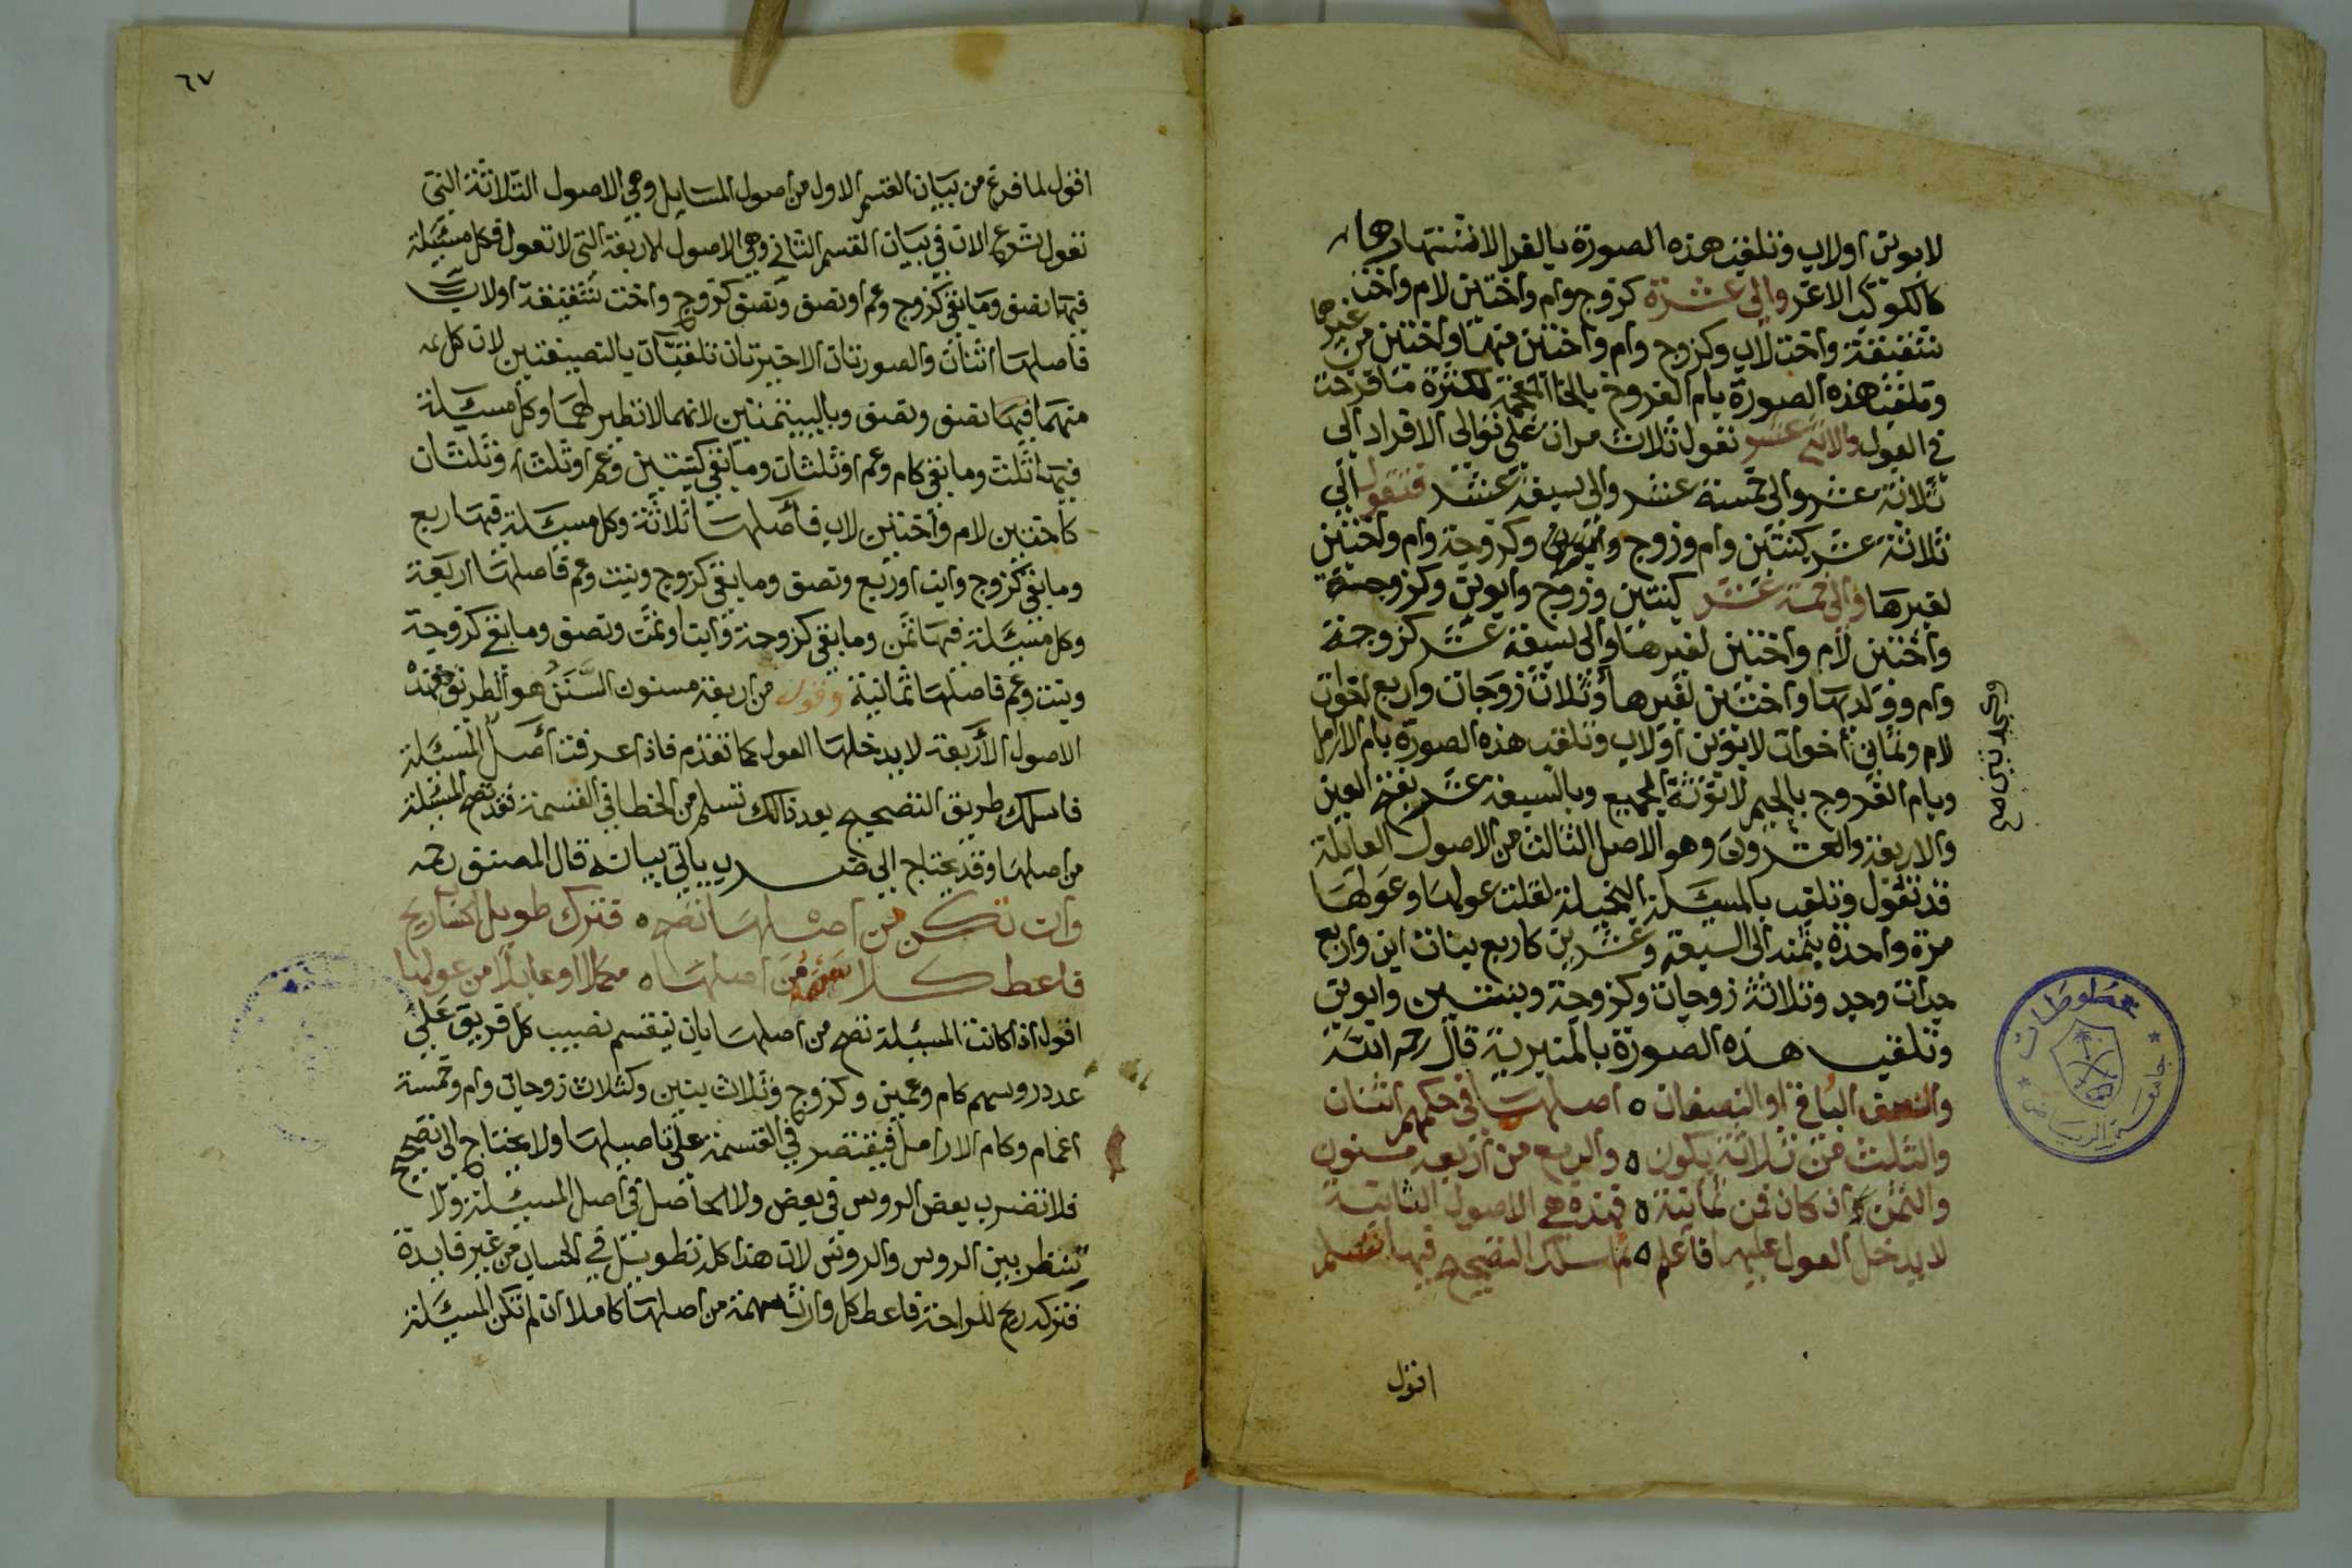 لابوين اولاب وتلقب هذه الصورة بالغرا لاشتهارها
كالكوكب الاغر والى عشرة كزوج وام واختين لام واخت
شقيقة واخت لاب وكزوج وام واختين منها واختين من غيرها
وتلقب هذه الصورة بام الفروخ بالخا المعجمة لكثرة ما فرخت
في العول والاثنى عشر تعول ثلاث مرات على توالى الافراد الى
ثلاثة عشر والى خمسة عشر والى سبعة عشر فتعول الى
ثلاثة عشر كبنتين وام وزوج وكزوجة وام واختين
لغيرها والى خمسة عشر كبنتين وزوج وابوين وكزوجة
واختين لام واختين لغيرها والى سبعة عشر كزوجة
وام وولديها واختين لغيرها وثلاث زوجات واربع اخوات
لام وثمانى اخوات لابوين اولاب وتلقب هذه الصورة بام الارامل
وبام الفروج بالجيم لانوثة الجميع وبالسبعة عشر
والاربعة والعشرون وهو الاصل الثالث من الاصول العايلة
قد تعول وتلقب بالمسئلة البخيلة لقلت عولها وعولها
مرة واحدة بثمنه الى السبعة وعشرين كاربع بنات ابن واربع
جدات وجد وثلاثة زوجات وكزوجة وبنتين وابوين
وتلقب هذه الصورة بالمنبرية قال رحمه الله
والنصف الباقي او النصفان ٥ اصلهما في حكمهم اثنان
والثلث من ثلاثة يكون ٥ والربع من اربعة مسنون
والثمن ان كان فمن ثمانية ٥ فهذه هي الاصول الثانية
لا يدخل العول عليها فاعلم ٥ ثم اسلك التصحيح فيها تسلم
اقول
وجد ثاني مع
٦٧
اقول لما فرغ من بيان القسم الاول من اصول المسايل وهي الاصول الثلاثة التي
تعول شرع الان في بيان القسم الثاني وهي الاصول الاربعة التي لا تعول فكل مسئلة
فيها نصف وما بقى كزوج وعم او نصف ونصف كزوج واخت شقيقة او لاب
فاصلها اثنان والصورتان الاخيرتان تلقبان بالنصيفتين لان كل
منهما فيها نصف ونصف وباليتيمتين لانهما لا نظير لهما وكل مسئلة
فيها ثلث وما بقى كام وعم او ثلثان وما بقى كبنتين وعم او ثلث وثلثان
كاختين لام واختين لاب فاصلها ثلاثة وكل مسئلة فيها ربع
وما بقى كزوج وابن او ربع ونصف وما بقى كزوج وبنت وعم فاصلها اربعة
وكل مسئلة فيها ثمن وما بقى كزوجة وابن او ثمن ونصف وما بقى كزوجة
وبنت وعم فاصلها ثمانية وقوله من اربعة مسنون السنن هو الطريق فهذه
الاصول الاربعة لا يدخلها العول كما تقدم فاذا عرفت اصل المسئلة
فاسلك طريق التصحيح بعد ذالك تسلم من الخطا في القسمة فقد تصح المسئلة
من اصلها وقد يحتاج الى ضرب ياتي بيانه قال المصنف رحمه
وان تكن من اصلها تصح ٥ فترك طويل الحساب ربح
فاعط كلا سهمه من اصلها ٥ مكملا او عايلا من عولها
اقول اذا كانت المسئلة تصح من اصلها بان ينقسم نصيب كل فريق على
عدد روسهم كام وعمين وكزوج وثلاث بنين وكثلاث زوجات وام وخمسة
اعمام وكام الارامل فيقتصر في القسمة على تاصيلها ولا يحتاج الى تصحيح
فلا تضرب بعض الروس في بعض ولا الحاصل في اصل المسئلة ولا
تنظر بين الروس والروس لان هذا كله تطويل في الحساب من غير فايدة
فتركه ربح للراحة فاعط كل وارث سهمه من اصلها كاملا ان لم تكن المسئلة
مخطوطات
جامعة الرياض